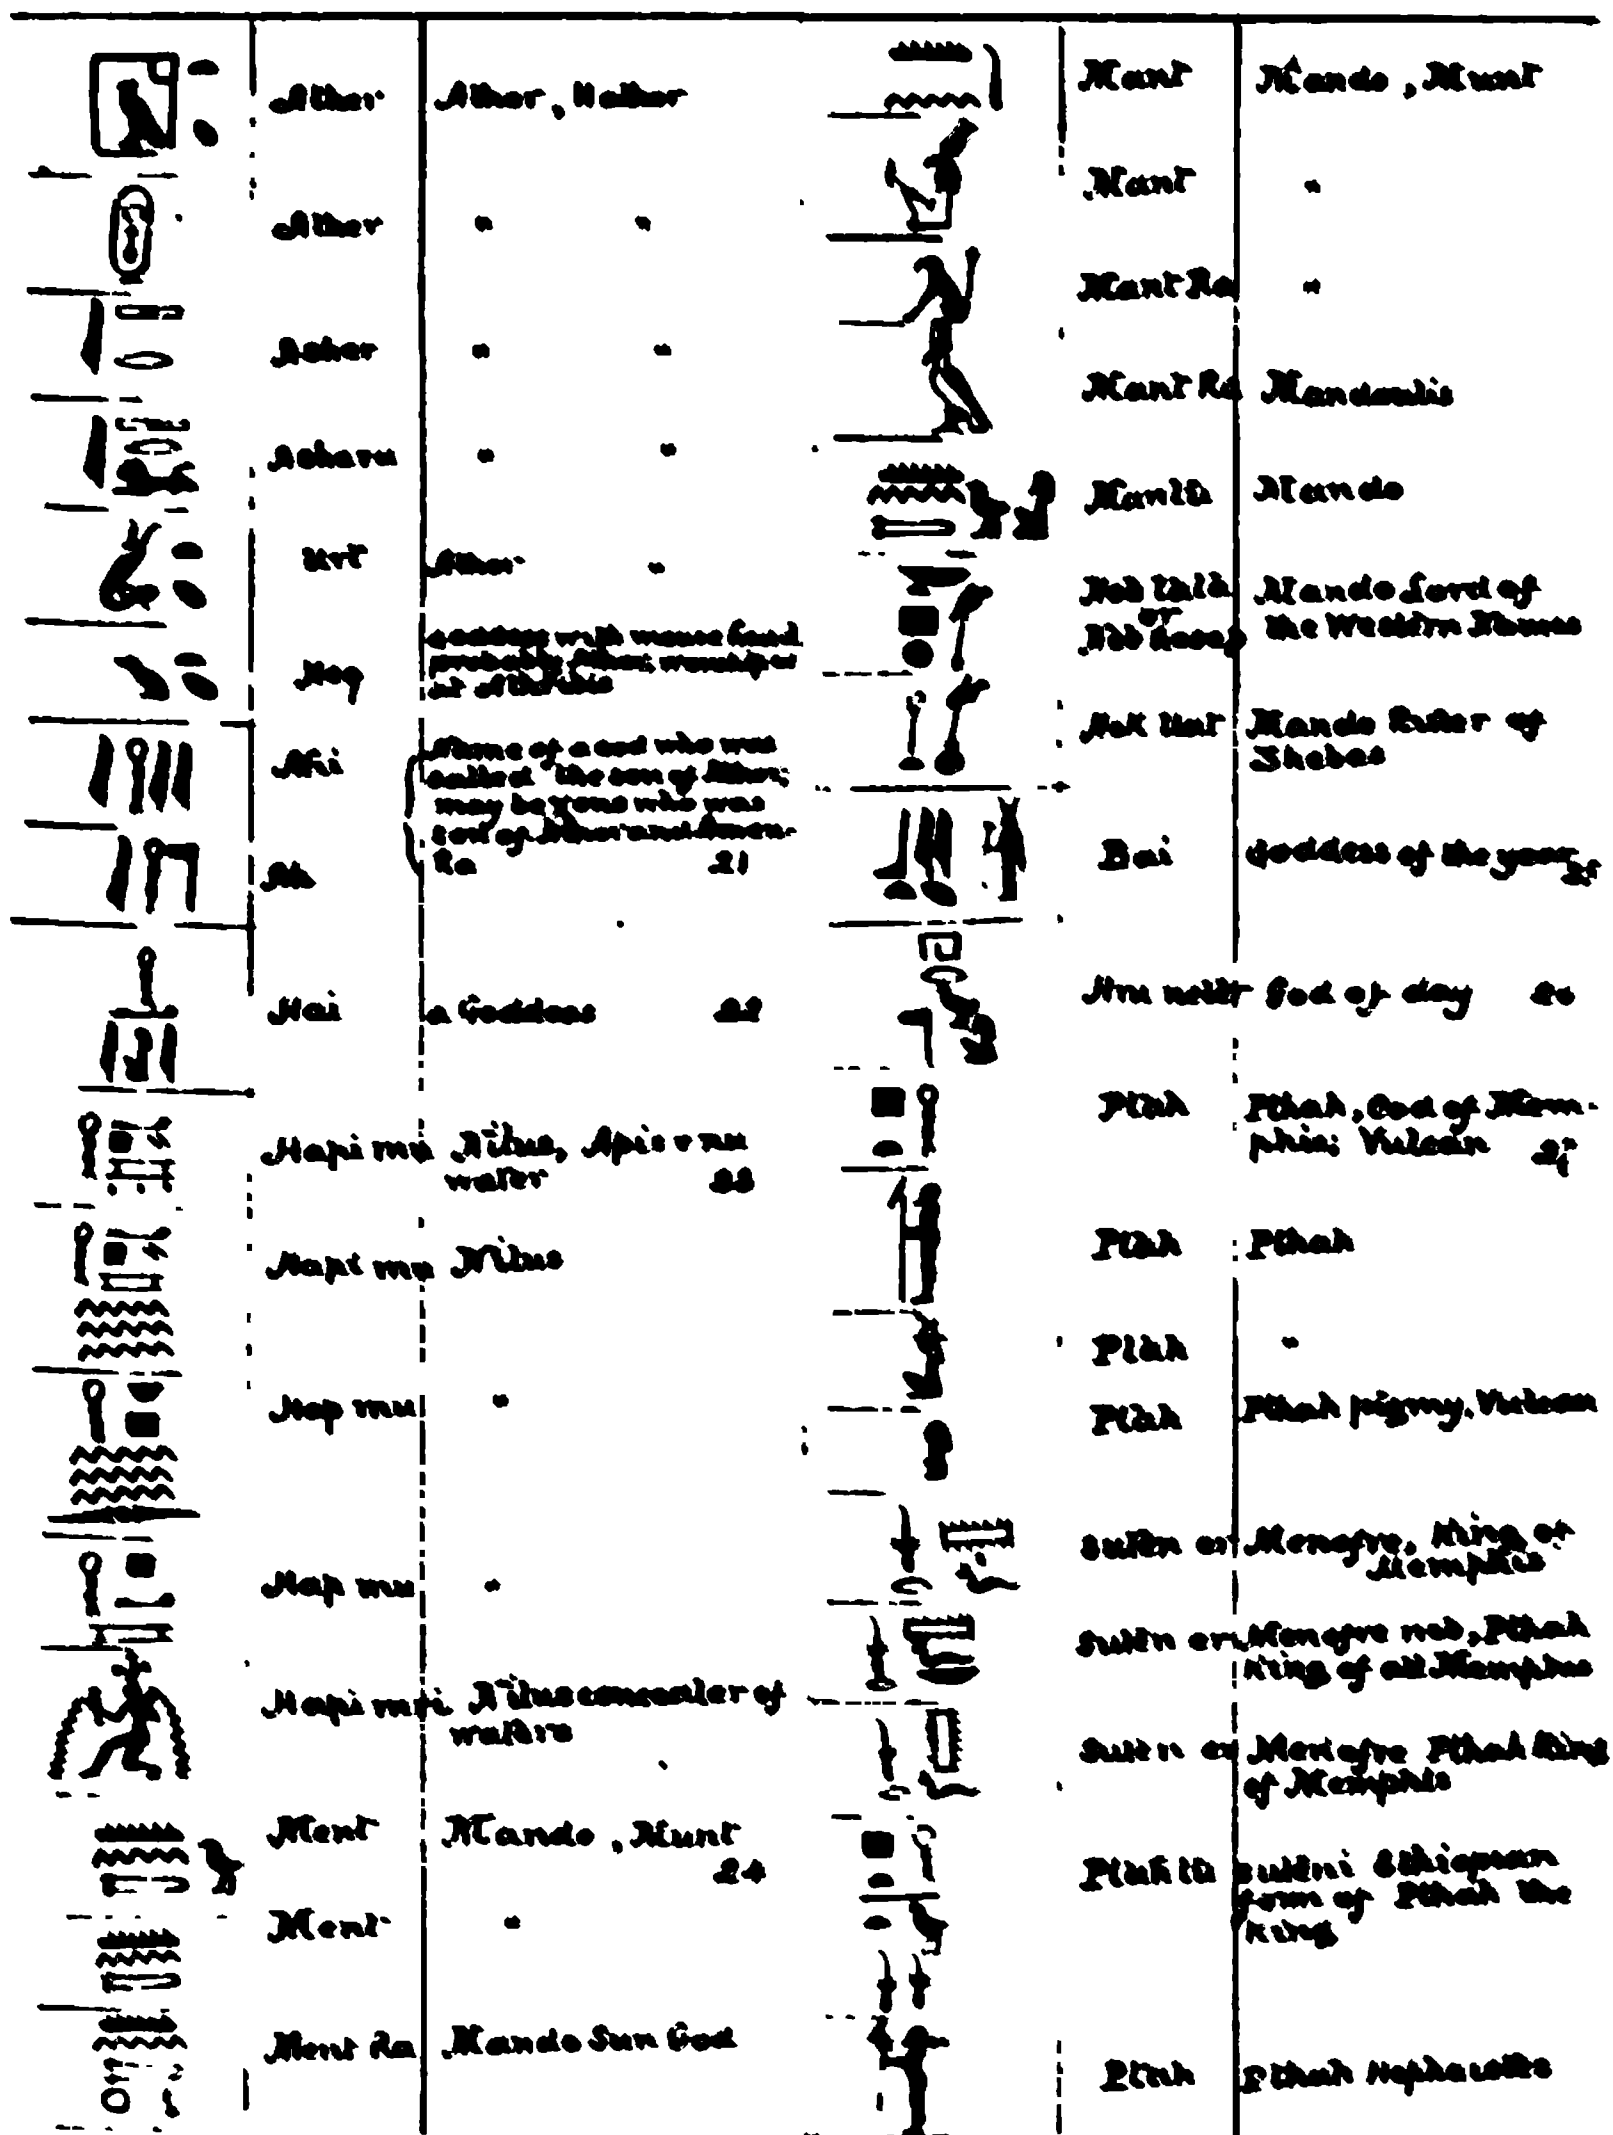 Ather Athor, Hathor
Ather " "
Asher " "
Asharu " "
Urt Athor "
Heq goddess with mouse head
probably Athor, worshiped
at Athribis
Ahi Name of a god who was
called the son of Athor;
may be xons who was
son of Athor and Amen-
Ah Ra 21
Hai a Goddess 22
Hapi mu Nilus, Apis or nu
water 23
Hapi mu Nilus
Hap mu "
Hap mu "
Hapi mu Nilus concealer of
waters
Ment Mando, Munt
24
Ment "
Ment Ra Mando Sun God
Mant Mando, Munt
Mant "
Mant Ra "
Mant Ra Mandoulis
Mantu Mando
Neb Mando Lord of
or
Neb the Western Thomes
Hek Uat Mando Ruler of
Thebes
Bai Goddess of the year
Hru God of day 26
Ptah Pthah, God of Mem-
phis; Vulcan 27
Ptah Pthah
Ptah "
Ptah Pthah pigmy, Vulcan
Suten en Menofre, King of
Memphis
Suten en Menofre neb, Pthah
King of all Memphis
Suten en Menofre Pthah King
of Memphis
Ptah ta suteni Ethiopian
form of Pthah the
King
Ptah Pthah